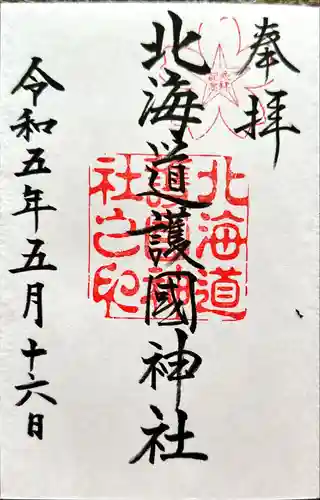 奉拝
北海道護國神社
令和五年五月十六日
北海道
護國神
社之印